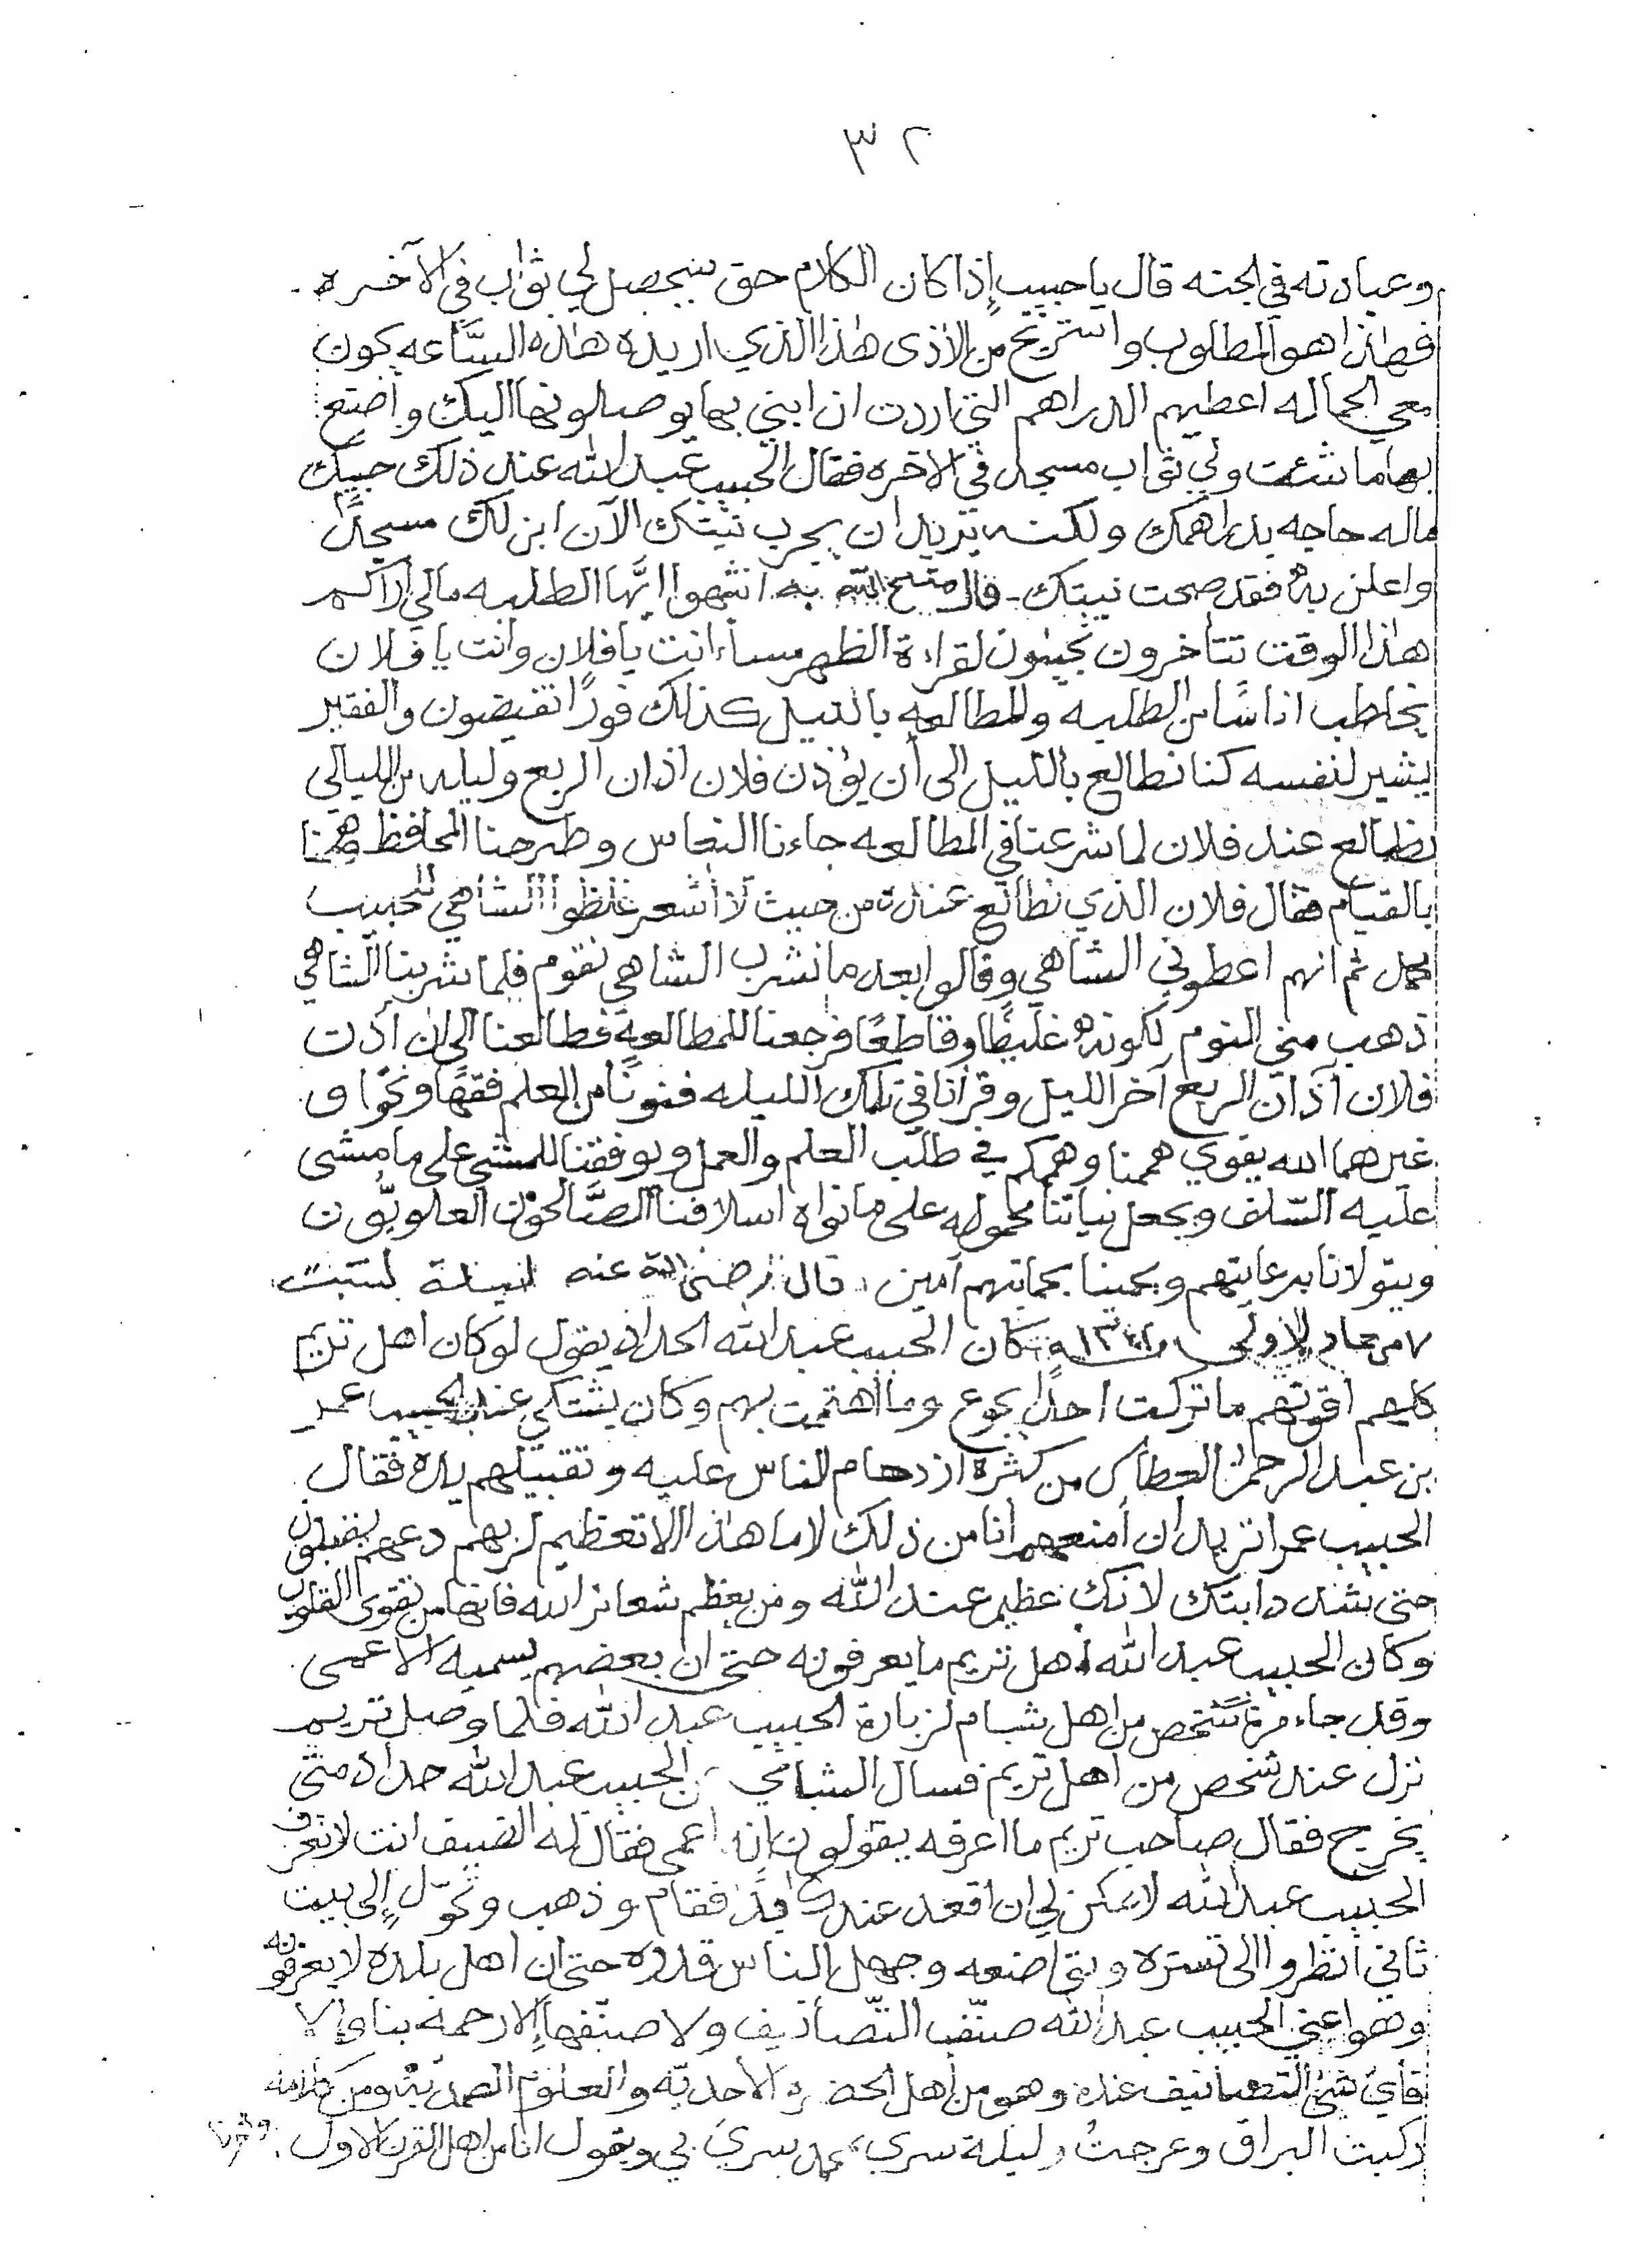 ٣٢
وعبادته في الجنه قال يا حبيب إذا كان الكلام حق سيحصل لي ثواب في الآخره
فهٰذا هو المطلوب واستريح من الأذى هٰذا الذي اريده هٰذه السَّاعه كون
معي الحماله اعطيهم الدراهم التي اردت ان ابني بها يوصلونها اليك واصنع
بها ما شئت ولي ثواب مسجد في الاخره فقال الحبيب عبد الله عند ذلك حبيبك
ماله حاجه بدراهمك ولكنه يريد ان يجرب نيتك الآن ابن لك مسجدًا
واعلن به فقد صحت نيتك - قال متع الله به انتبهوا ايَّها الطلبه مالي اراكم
هٰذا الوقت تتأخرون تجيئون لقراءة الظهر مساء انت يا فلان وانت يا فلان
يخاطب اناسًا من الطلبه والمطالعه بالليل كذلك فورًا تفيضون والفقير
يشير لنفسه كنا نطالع بالليل الى أن يؤذن فلان اذان الربع وليله من الليالي
نطالع عند فلان لما شرعنا في المطالعه جاءنا النعاس وطرحنا المحافظ وهمنا
بالقيام فقال فلان الذي نطالع عنده من حيث لا أشعر غلظوا الشاهي للحبيب
محمد ثم انهم اعطوني الشاهي وقالوا بعد ما نشرب الشاهي نقوم فلما شربنا الشاهي
ذهب مني النوم لكونه غليظًا وقاطعًا فرجعنا للمطالعه فطالعنا الى ان أذن
فلان آذان الربع آخر الليل وقرأنا في تلك الليله فنونًا من العلم فقهًا ونحوًا و
غيرهما الله يقوي هممنا وهممكم في طلب العلم والعمل ويوفقنا للمشي على ما مشى
عليه السّلف ويجعل نياتنا محموله على ما نواه اسلافنا الصَّالحون العلويّون
ويتولانا برعايتهم ويحمينا بحمايتهم آمين . قال رضي الله عنه ليلة السبت
من جماد الاولى كان الحبيب عبد الله الحداد يقول لو كان اهل تريم
كلهم اقوتهم ما تركت احدًا يجوع وما اهتميت بهم وكان يشتكي عند الحبيب عمر
بن عبد الرحمٰن العطاس من كثرة ازدهام الناس عليه وتقبيلهم يده فقال
الحبيب عمر اتريد ان أمنعهم انا من ذلك لا ما هٰذا الا تعظيم لربهم دعهم يقبلون
حتى بشد دابتك لانك عظيم عند الله ومن يعظم شعائر الله فانها من تقوى القلوب
وكان الحبيب عبد الله اهل تريم ما يعرفونه حتى ان بعضهم يسميه الاعمى
وقد جاء مرة شخص من اهل شبام لزيارة الحبيب عبد الله فلما وصل تريم
نزل عند شخص من اهل تريم فسال الشبامي عن الحبيب عبد الله حداد متى
يخرج فقال صاحب تريم ما اعرفه يقولون انه اعمى فقال له الضيف انت لا تعرف
الحبيب عبد الله لا يمكن لي ان اقعد عندك ابدًا فقام وذهب وتحوّل إلى بيت
ثاني انظروا الى تستره وتواضعه وجهل الناس قدره حتى ان اهل بلده لا يعرفونه
وهو اعني الحبيب عبد الله صنّف التّصانيف ولا صنّفها إلا رحمة بنا وإلا
فأي شئ التصانيف عنده وهو من أهل الحضره الاحديّه والعلوم الصمديّه ومن كلامه
ركبت البراق وعرجتُ وليلة سري بمحمد سري بي ويقول انا من اهل القرن الاول